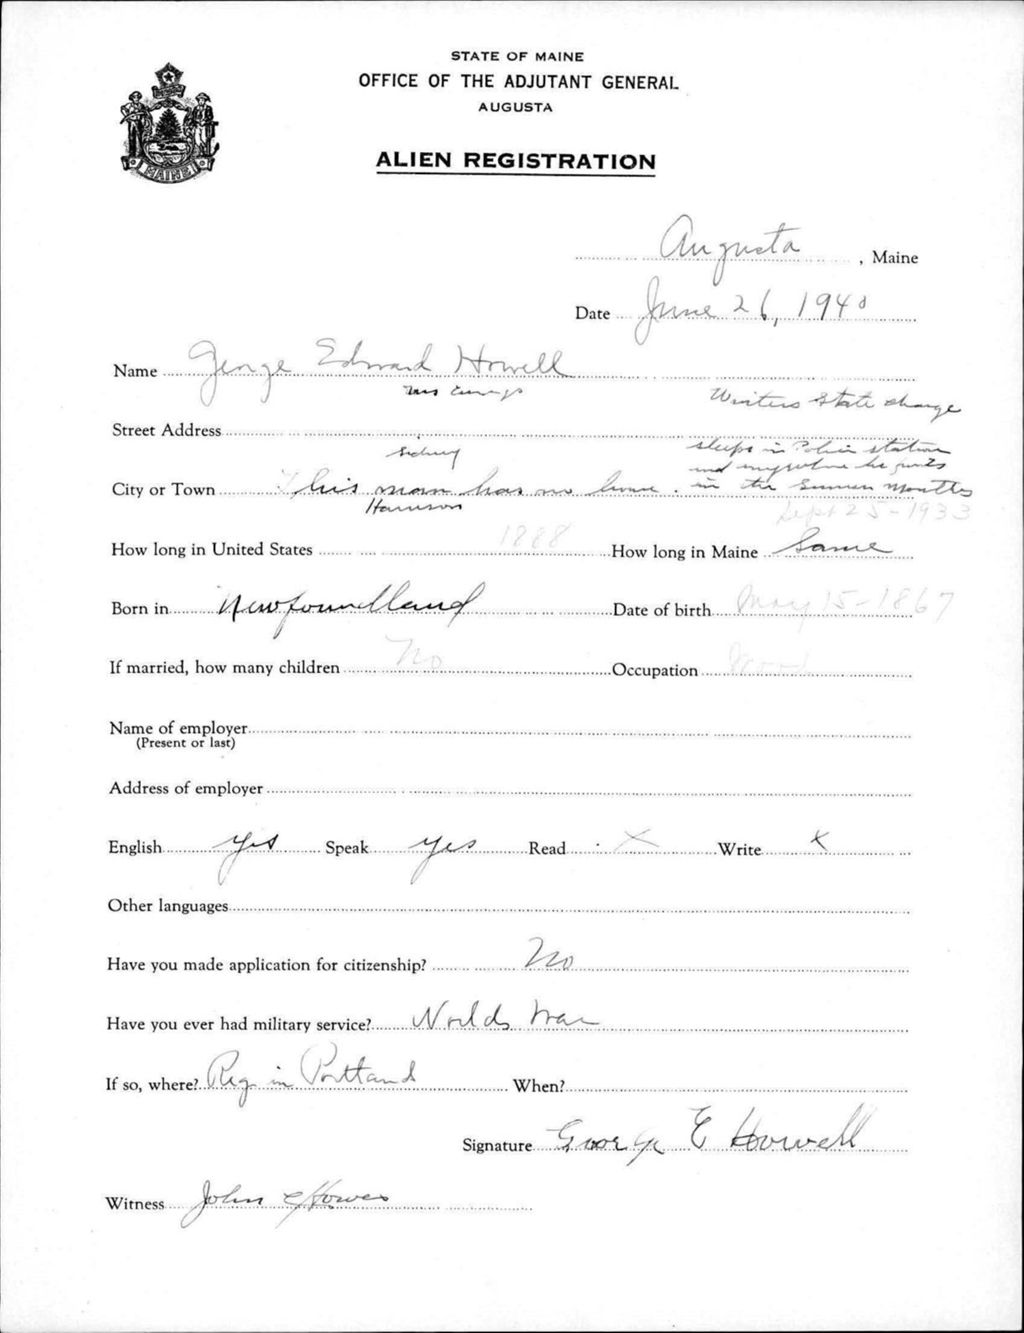 STATE OF MAINE
OFFICE OF THE ADJUTANT GENERAL
AUGUSTA
MAINE
ALIEN REGISTRATION
Augusta, Maine
Date June 26, 1940
Name George Edward Howell
Winters State change
Street Address
Sidney sleeps in Police station
and he
City or Town This man has no home. in the Summer Months
Harrison Sept 25-1933
How long in United States 1888 How long in Maine Same
Born in Newfoundland Date of birth May 15-1867
If married, how many children No Occupation
Name of employer
(Present or last)
Address of employer
English yes Speak yes Read X Write X
Other languages
Have you made application for citizenship? No
Have you ever had military service? Worlds War
If so, where? Reg in Portland When?
Signature George E Howell
Witness John